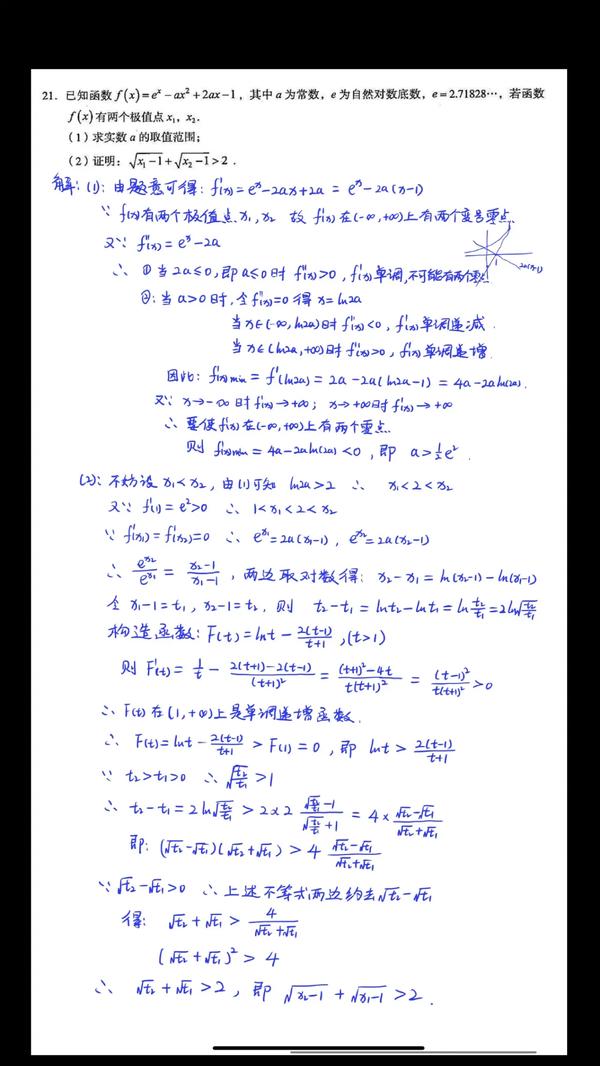 21. 已知函数 f(x)=eˣ-ax²+2ax-1，其中 a 为常数，e 为自然对数底数，e=2.71828…，若函数
f(x) 有两个极值点 x₁，x₂．
(1) 求实数 a 的取值范围；
(2) 证明：√(x₁-1)+√(x₂-1)>2．
解：(1)：由题意可得：f'(x)=eˣ-2ax+2a = eˣ-2a(x-1)
∵ f(x)有两个极值点x₁,x₂ 故 f'(x)在(-∞,+∞)上有两个变号零点
又∵ f''(x)=eˣ-2a
2a(x-1)
∴ ①当2a≤0,即a≤0时 f''(x)>0, f'(x)单调,不可能有两个
②:当a>0时,令f''(x)=0得x=ln2a
当x∈(-∞,ln2a)时f''(x)<0, f'(x)单调递减.
当x∈(ln2a,+∞)时f''(x)>0, f'(x)单调递增.
因此: f'(x)min = f'(ln2a) = 2a-2a(ln2a-1) = 4a-2aln(2a).
又∵ x→-∞时f'(x)→+∞; x→+∞时f'(x)→+∞
∴ 要使f'(x)在(-∞,+∞)上有两个零点.
则 f'(x)min = 4a-2aln(2a)<0, 即 a>½e².
(2): 不妨设x₁<x₂, 由(1)可知 ln2a>2 ∴ x₁<2<x₂
又∵ f'(1)=e²>0 ∴ 1<x₁<2<x₂
∵ f'(x₁)=f'(x₂)=0 ∴ eˣ¹=2a(x₁-1), eˣ²=2a(x₂-1)
∴ eˣ²/eˣ¹ = (x₂-1)/(x₁-1), 两边取对数得: x₂-x₁=ln(x₂-1)-ln(x₁-1)
令x₁-1=t₁, x₂-1=t₂, 则 t₂-t₁=lnt₂-lnt₁=ln(t₂/t₁)=2ln√(t₂/t₁)
构造函数: F(t)=lnt-2(t-1)/(t+1), (t>1)
则 F'(t)=1/t-(2(t+1)-2(t-1))/(t+1)²=((t+1)²-4t)/(t(t+1)²)=(t-1)²/(t(t+1)²)>0
∴ F(t)在(1,+∞)上是单调递增函数.
∴ F(t)=lnt-2(t-1)/(t+1)>F(1)=0, 即 lnt>2(t-1)/(t+1)
∵ t₂>t₁>0 ∴ √(t₂/t₁)>1
∴ t₂-t₁=2ln√(t₂/t₁)>2×2(√(t₂/t₁)-1)/(√(t₂/t₁)+1)=4×(√t₂-√t₁)/(√t₂+√t₁)
即: (√t₂-√t₁)(√t₂+√t₁)>4(√t₂-√t₁)/(√t₂+√t₁)
∵ √t₂-√t₁>0 ∴ 上述不等式两边约去√t₂-√t₁
得: √t₂+√t₁>4/(√t₂+√t₁)
(√t₂+√t₁)²>4
∴ √t₂+√t₁>2, 即 √(x₂-1)+√(x₁-1)>2.